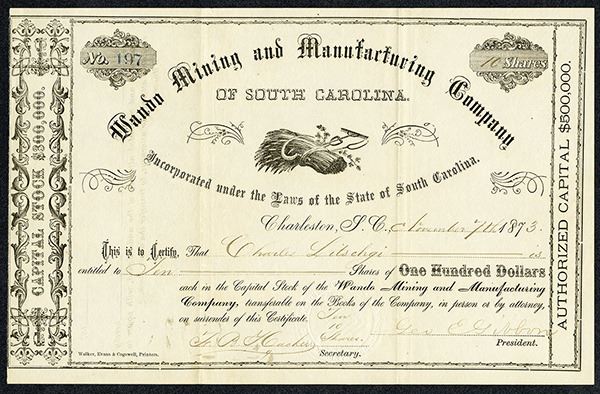 No. 197
10 Shares
Wando Mining and Manufacturing Company
OF SOUTH CAROLINA.
Incorporated under the Laws of the State of South Carolina.
Charleston, S.C., November 7th 1873.
This is to Certify, That Charles Litschgi is
entitled to Ten Shares of One Hundred Dollars
each in the Capital Stock of the Wando Mining and Manufacturing
Company, transferable on the Books of the Company, in person or by attorney,
on surrender of this Certificate.
Ten
10
Shares.
Secretary.
President.
Walker, Evans & Cogswell, Printers.
CAPITAL STOCK $300,000.
AUTHORIZED CAPITAL $500,000.